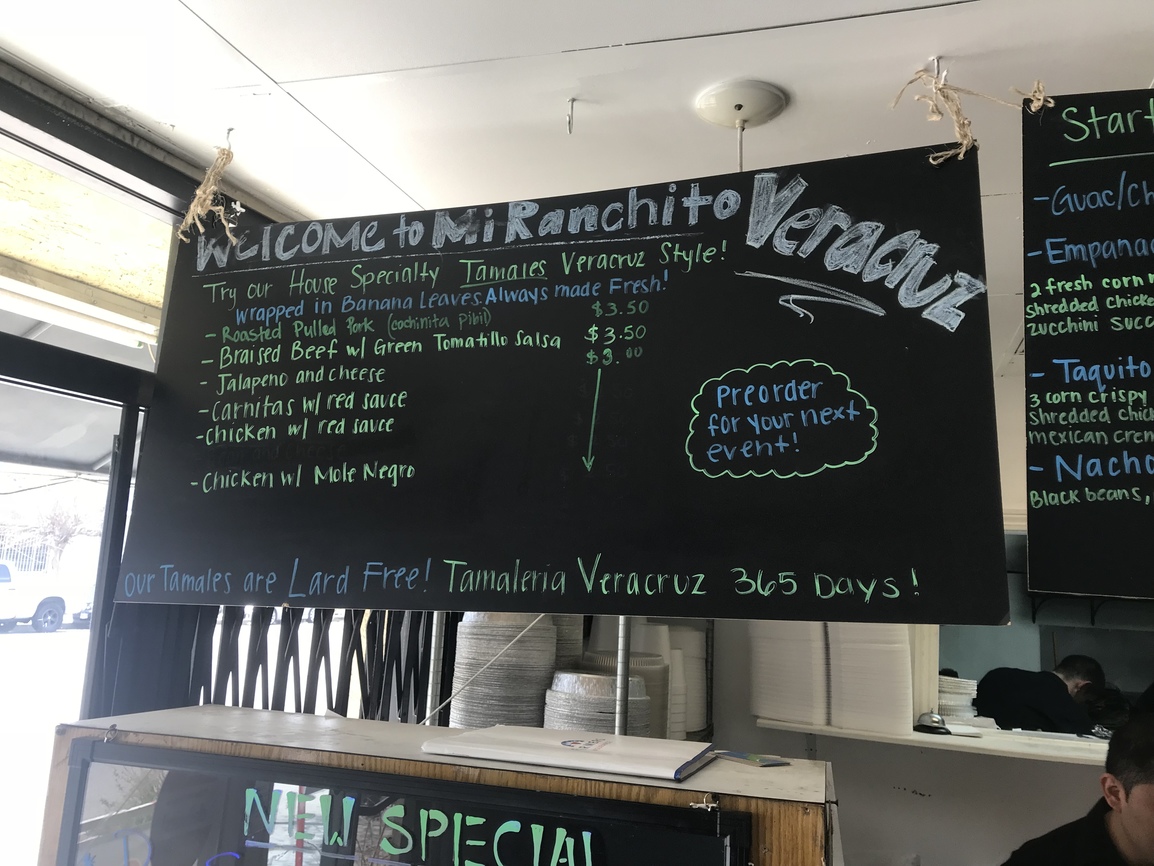 Welcome to Mi Ranchito Veracruz
Try our House Specialty Tamales Veracruz Style!
wrapped in Banana Leaves. Always made Fresh!
- Roasted Pulled Pork (cochinita pibil) $3.50
- Braised Beef w/ Green Tomatillo Salsa $3.50
- Jalapeno and cheese $3.00
- Carnitas w/ red sauce
- Chicken w/ red sauce
- Chicken w/ Mole Negro
Preorder
for your next
event!
our Tamales are Lard Free! Tamaleria Veracruz 365 Days!
Start
- Guac/Ch
- Empana
2 fresh corn
Shredded chicke
zucchini succ
- Taquito
3 corn crispy
Shredded chic
mexican crem
- Nacho
Black beans,
NEW SPECIAL